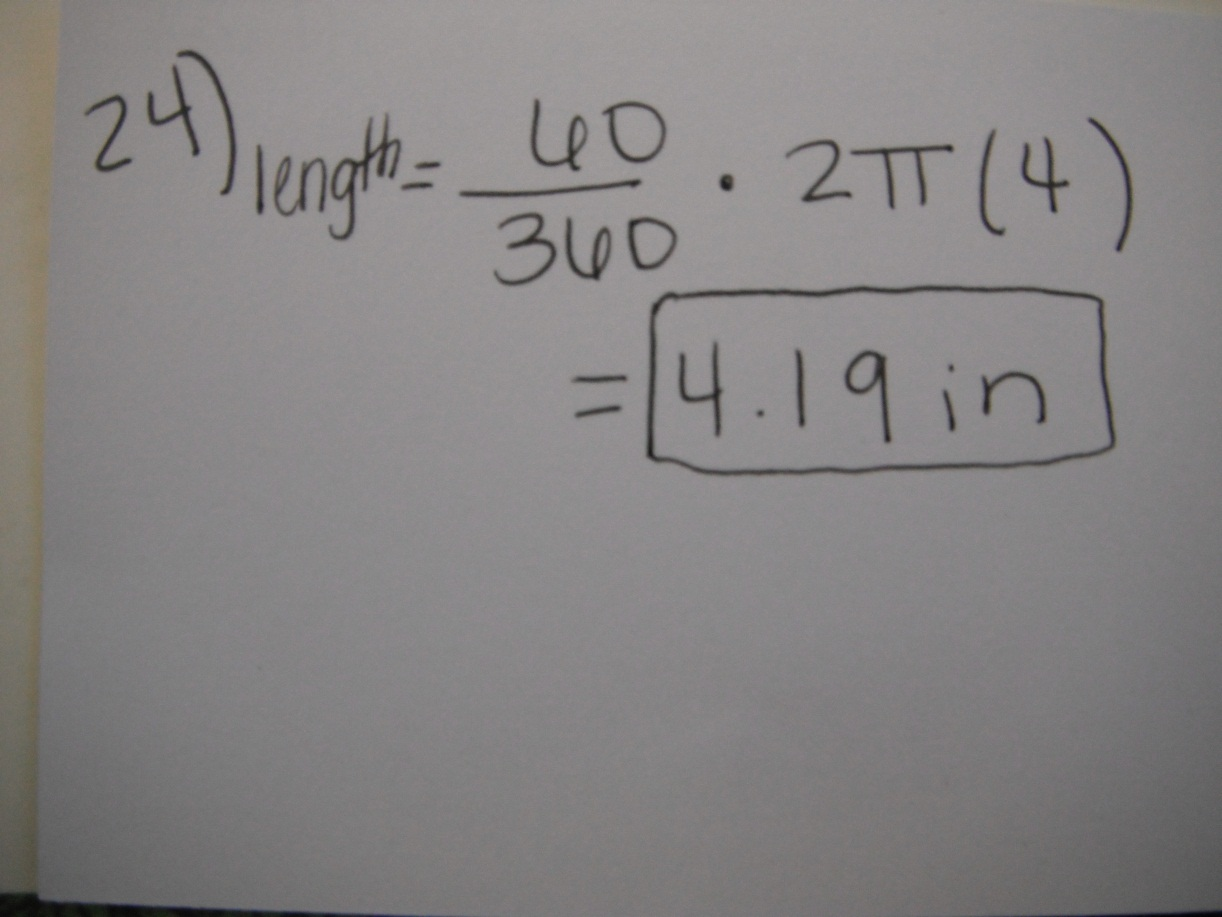 24) length = 60/360 · 2π(4)
= 4.19 in